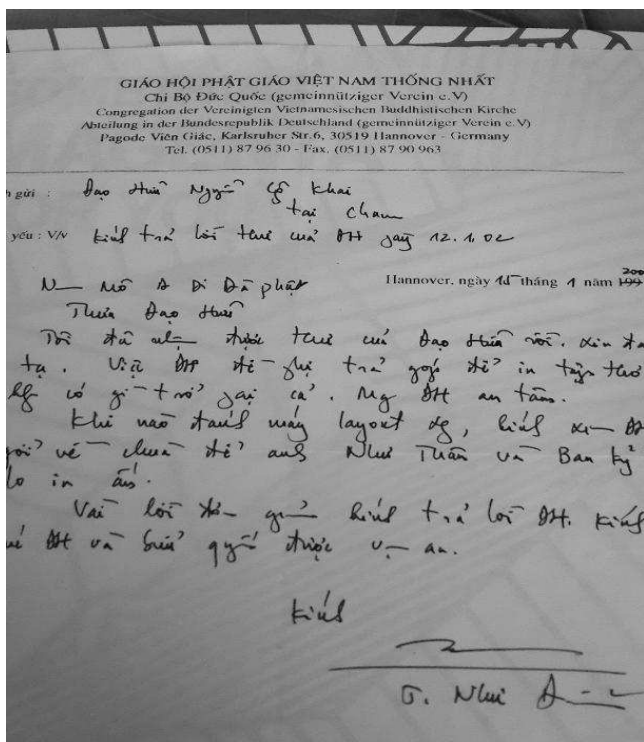 GIÁO HỘI PHẬT GIÁO VIỆT NAM THỐNG NHẤT
Chi Bộ Đức Quốc (gemeinnütziger Verein e.V)
Congregation der Vereinigten Vietnamesischen Buddhistischen Kirche
Abteilung in der Bundesrepublik Deutschland (gemeinnütziger Verein e.V)
Pagode Viên Giác, Karlsruher Str.6, 30519 Hannover - Germany
Tel. (0511) 87 96 30 - Fax. (0511) 87 90 963
gửi : Đạo Hữu Nguyễn Khai
tại Cham
yếu : V/v kính trả lời thư của ĐH ngày 12.1.02
Mô A Di Đà Phật
Hannover, ngày 15 tháng 1 năm 199 200
Thưa Đạo Hữu
Tôi đã nhận được thư của Đạo Hữu rồi. Xin đa
tạ. Việc ĐH đề nghị trả góp để in tập thơ
có gì trở ngại cả. Mong ĐH an tâm.
Khi nào đánh máy layout xong, kính xin ĐH
gởi về chùa để anh Như Thân và Ban kỹ
lo in ấn.
Vài lời đơn giản kính trả lời ĐH. Kính
ĐH và bửu quyến được vạn an.
Kính
T. Như